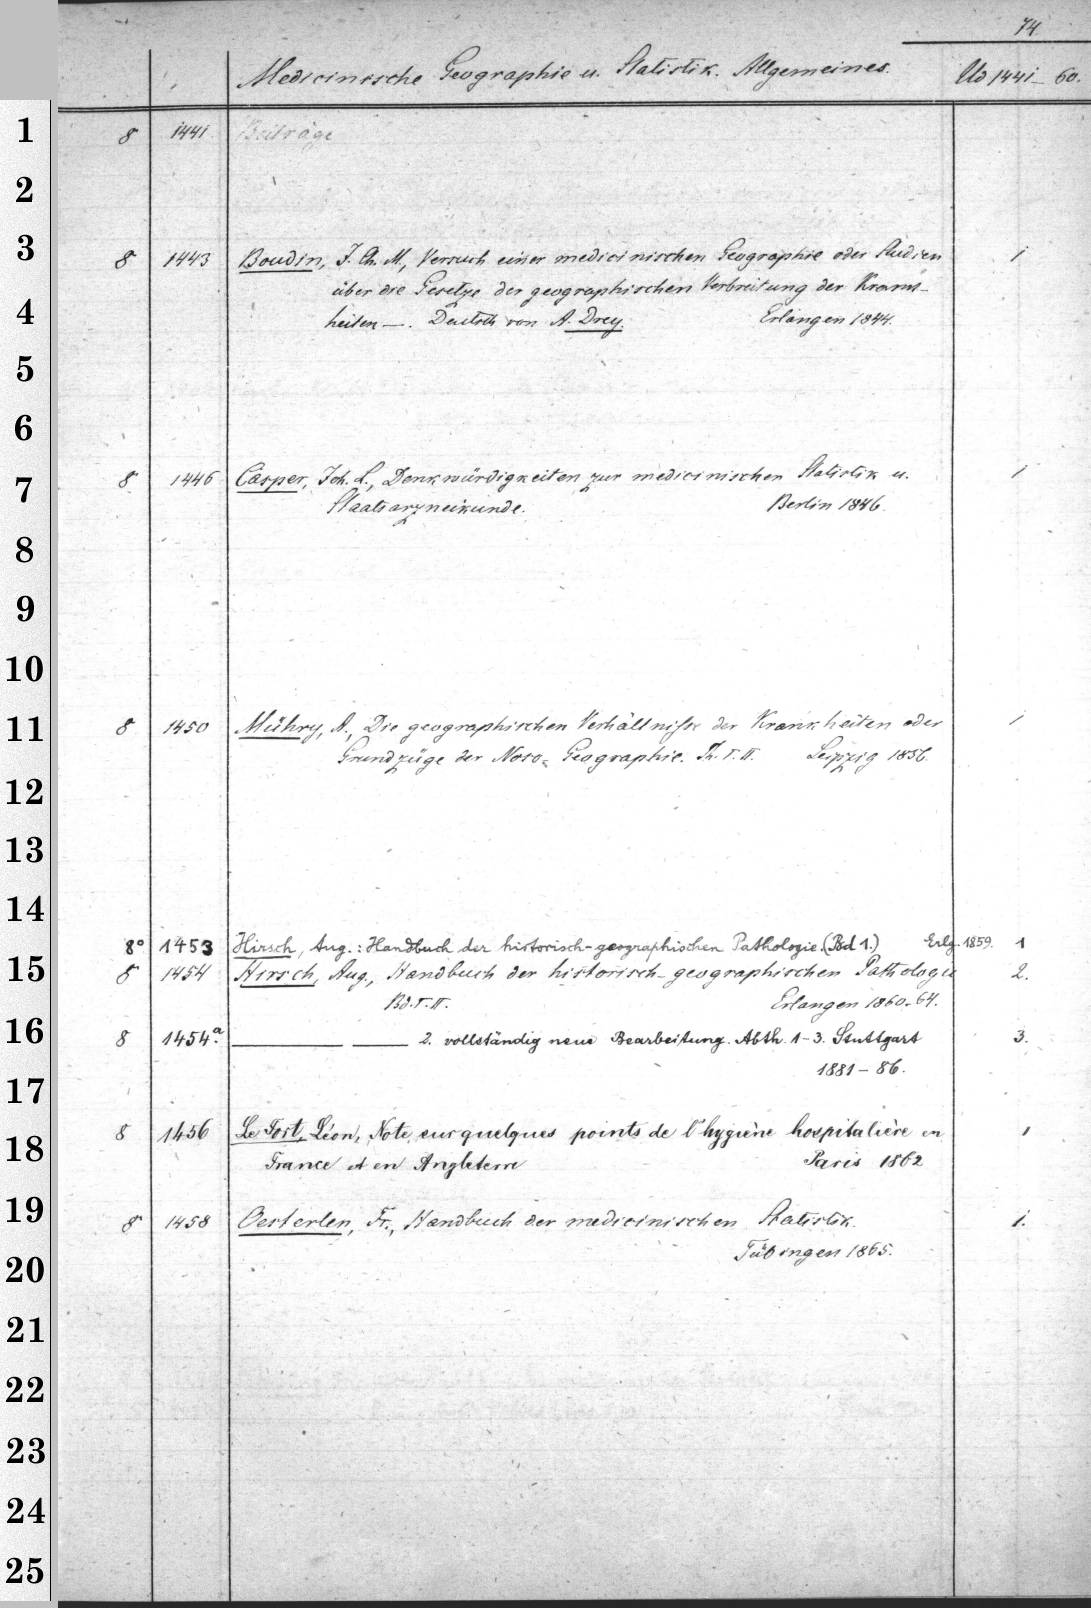 74
Medicinische Geographie u. Statistik. Allgemeines. Ud 1441–60.
1
8 1441. Beiträge
2
3
8 1443 Boudin, J. Ch. M., Versuch einer medicinischen Geographie oder Studien 1
über die Gesetze der geographischen Verbreitung der Krank-
4
heiten —. Deutsch von A. Drey. Erlangen 1844.
5
6
7
8 1446 Casper, Joh. L., Denkwürdigkeiten zur medicinischen Statistik u. 1
Staatsarzneikunde. Berlin 1846.
8
9
10
11
8 1450 Mühry, A., Die geographischen Verhältnisse der Krankheiten oder 1
Grundzüge der Noso-Geographie. Th. I. II. Leipzig 1856.
12
13
14
8° 1453 Hirsch, Aug.: Handbuch der historisch-geographischen Pathologie. (Bd 1.) Erlg. 1859. 1
15
8 1454 Hirsch, Aug., Handbuch der historisch-geographischen Pathologie 2.
Bd. I. II. Erlangen 1860-64.
16
8 1454a. —— —— 2. vollständig neue Bearbeitung. Abth. 1–3. Stuttgart 3.
1881–86.
17
8 1456 Le Fort, Léon, Note sur quelques points de l'hygiène hospitalière en 1
18
France et en Angleterre Paris 1862
19
8 1458 Oesterlen, Fr., Handbuch der medicinischen Statistik. 1.
Tübingen 1865.
20
21
22
23
24
25